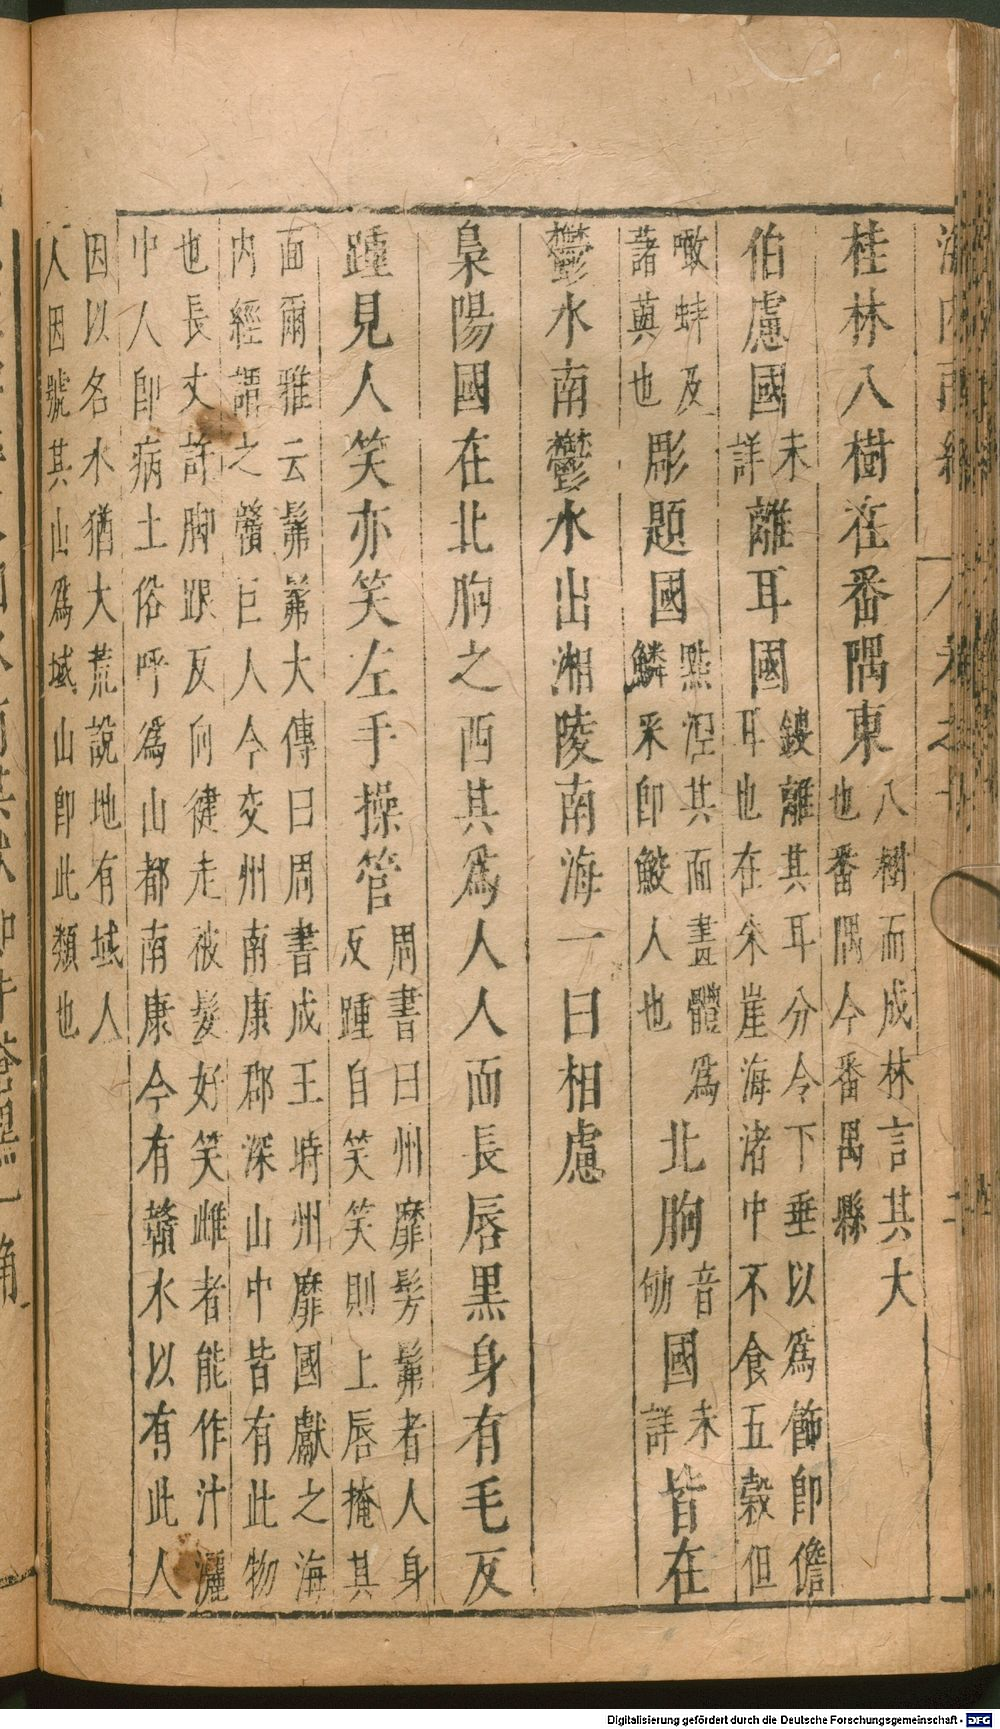 桂林八樹在番隅東八樹而成林言其大
也番隅今番禺縣
伯慮國未
詳離耳國鎪離其耳分令下垂以爲飾卽儋
耳也在朱崖海渚中不食五穀但
噉蚌及
藷藇也彫題國點涅其面畫體爲
鱗采卽鮫人也北朐音
劬國未
詳皆在
鬱水南鬱水出湘陵南海一曰相慮
梟陽國在北朐之西其爲人人面長唇黒身有毛反
踵見人笑亦笑左手操管周書曰州靡髣髴者人身
反踵自笑笑則上唇掩其
面爾雅云髴髴大傳曰周書成王時州靡國獻之海
内經謂之贛巨人今交州南康郡深山中皆有此物
也長丈許脚跟反向健走被髮好笑雌者能作汁灑
中人卽病土俗呼爲山都南康今有贛水以有此人
因以名水猶大荒說地有域人
人因號其山爲域山卽此類也
Digitalisierung gefördert durch die Deutsche Forschungsgemeinschaft - DFG